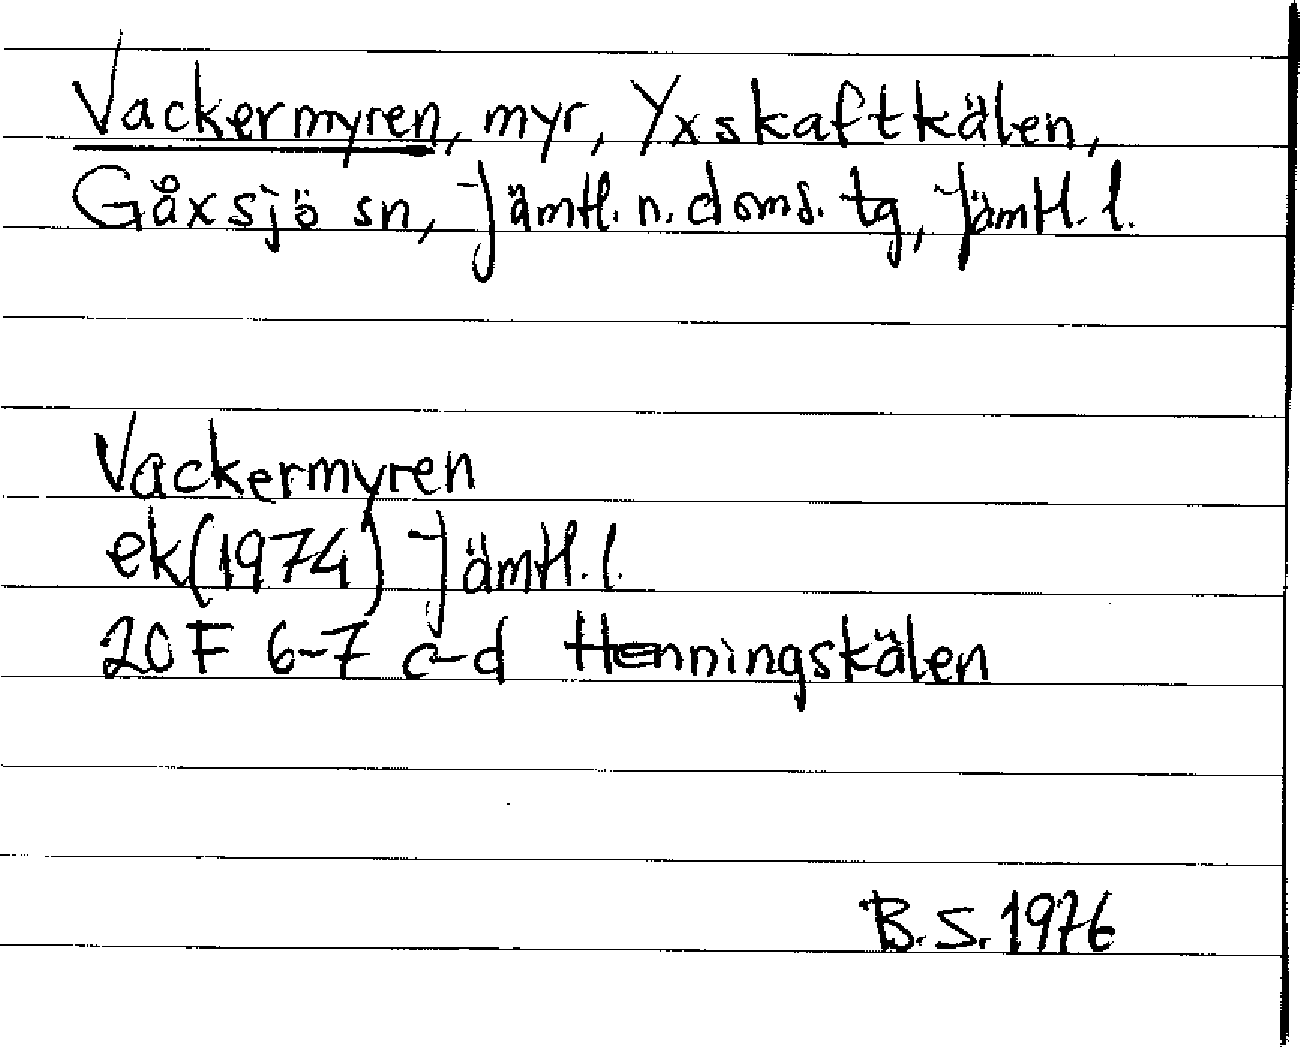 Vackermyren, myr, Yxskaftkälen,
Gåxsjö sn, Jämtl. n. doms. tg, Jämtl. l.
Vackermyren
ek (1974) Jämtl. l.
20 F 6-7 c-d Henningskälen
B.S. 1976